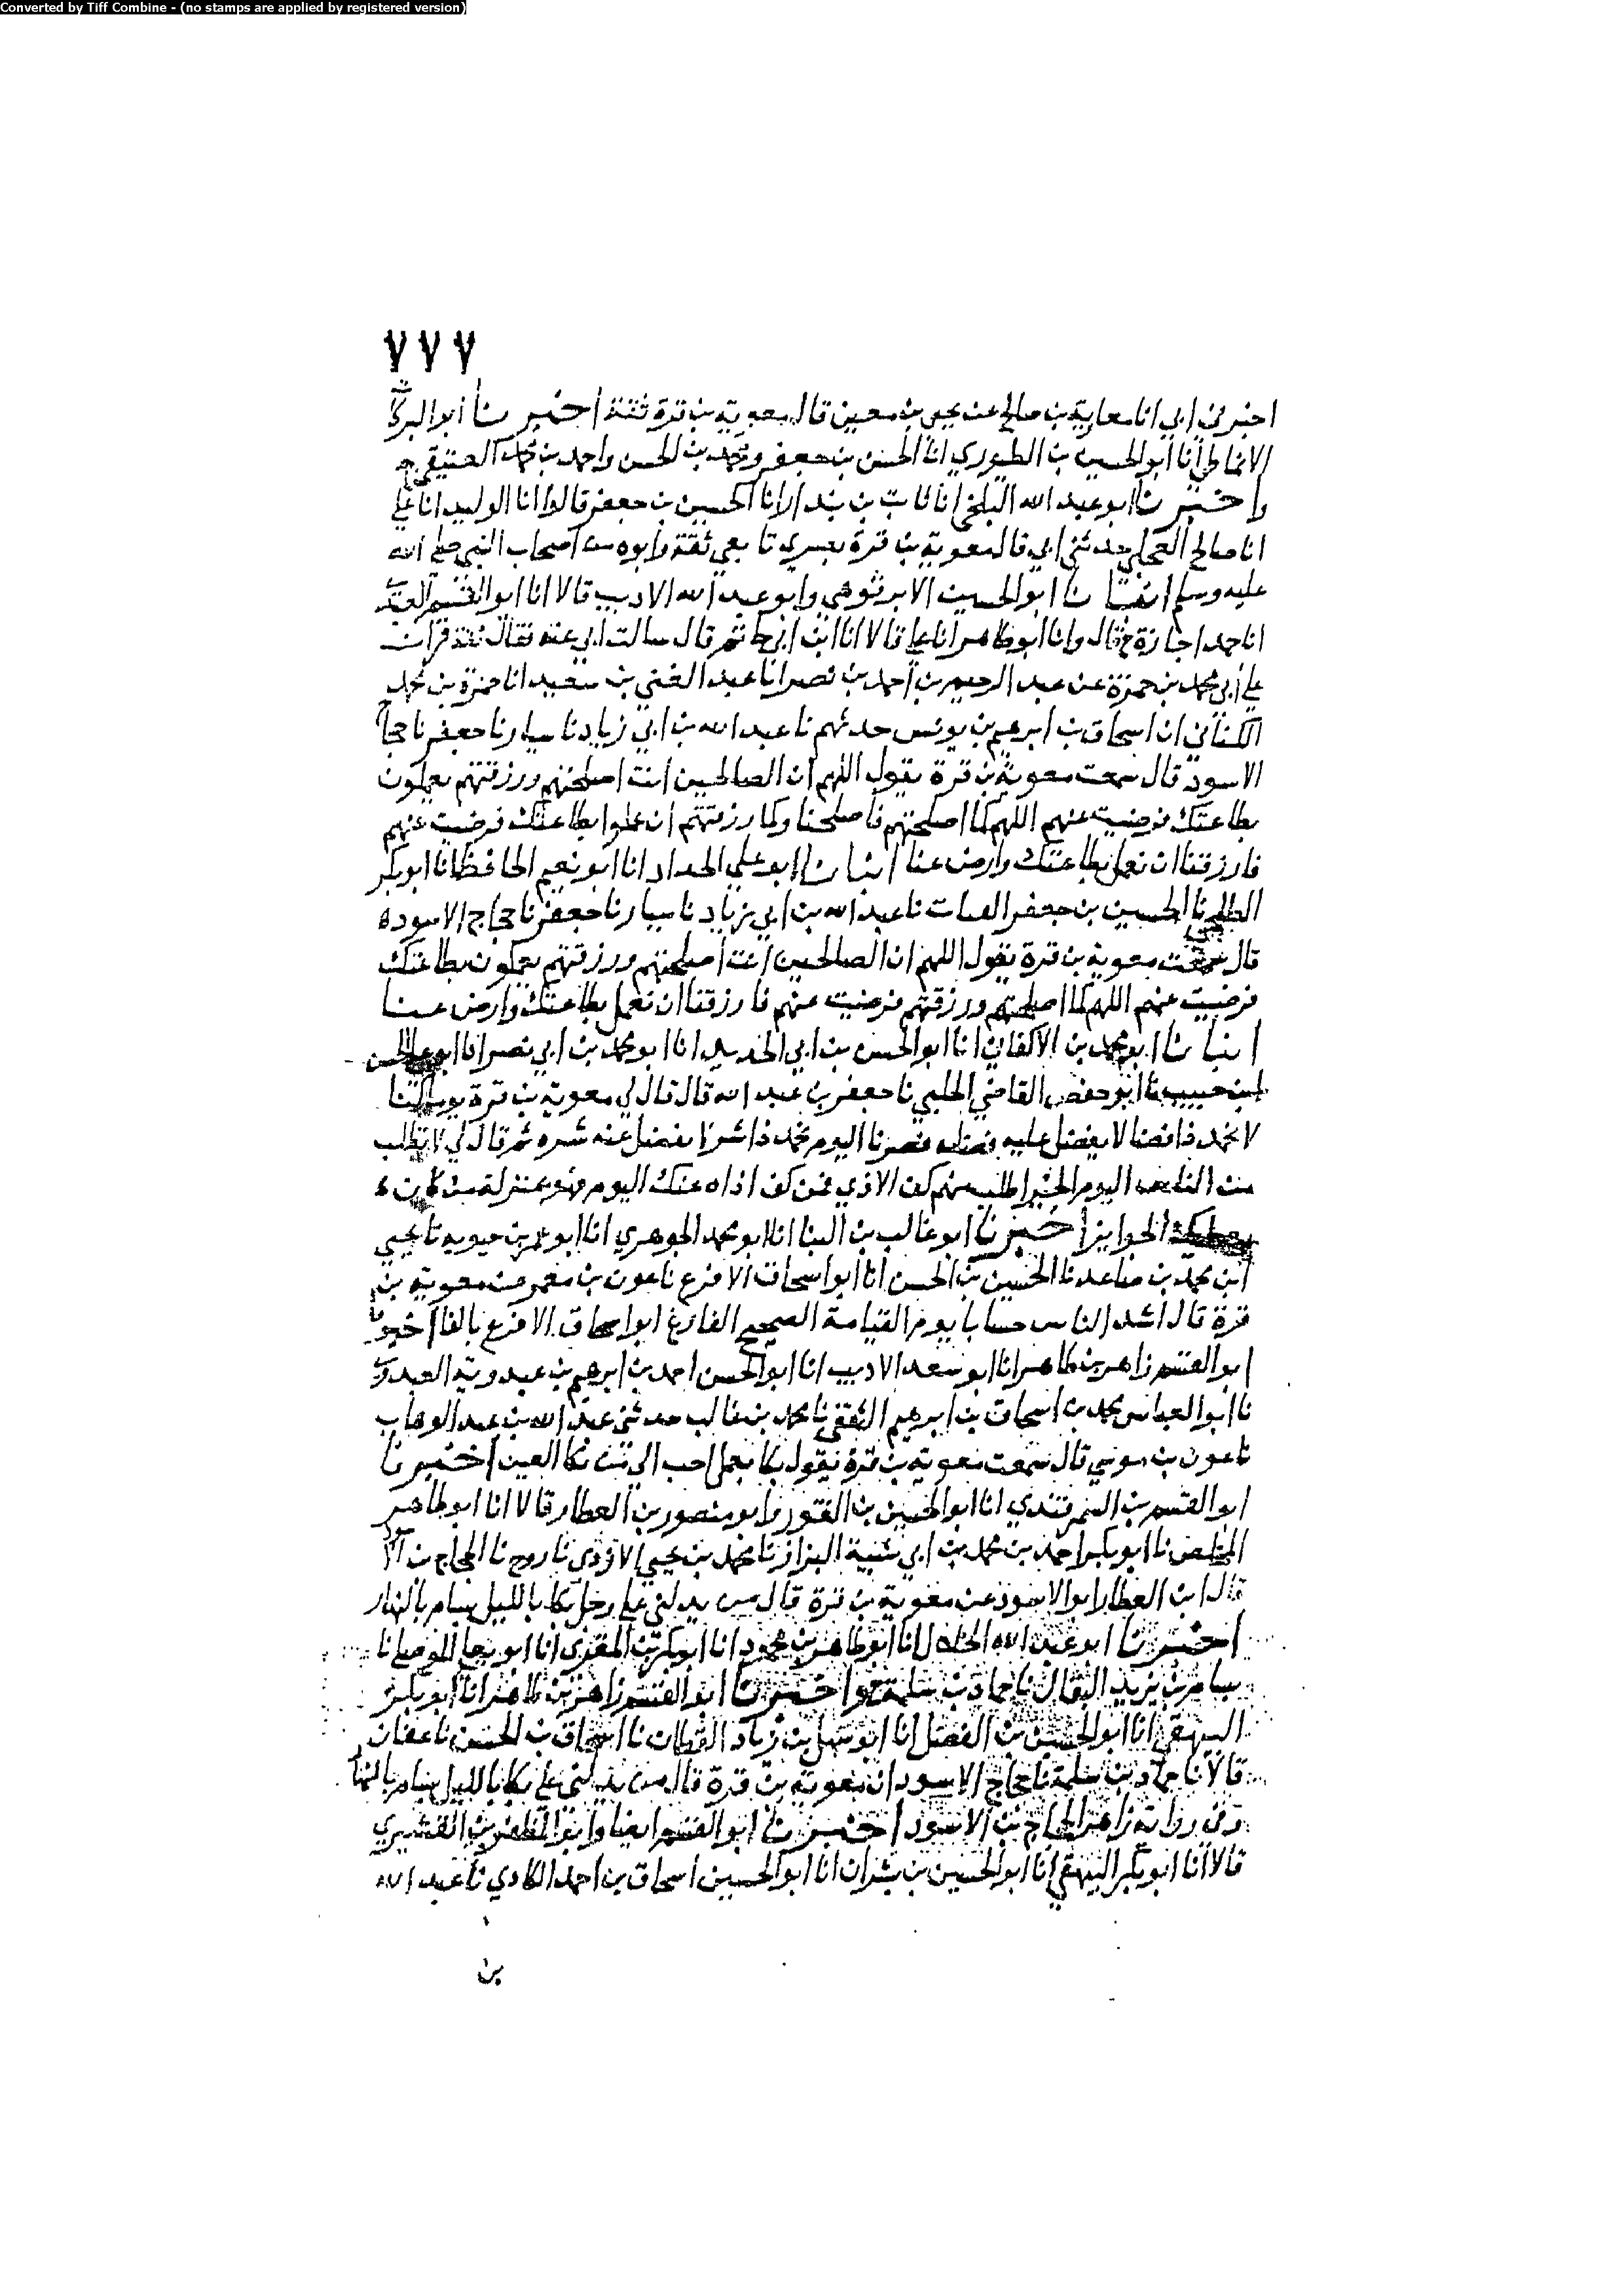 Converted by Tiff Combine - (no stamps are applied by registered version)
٧٧٧
اخبرني ابي انا معاوية بن صالح عن يحيى بن معين قال معوية بن قرة ثقة اخبرنا ابو البركات
الانماطي انا ابو الحسين بن الطيوري انا الحسين بن جعفر ومحمد بن الحسن واحمد بن محمد العتيقي ح
واخبرنا ابو عبد الله البلخي انا ثابت بن بندار انا الحسين بن جعفر قالوا انا الوليد انا علي
انا صالح العجلي حدثني ابي قال معوية بن قرة بصري تابعي ثقة وابوه من اصحاب النبي صلى الله
عليه وسلم انبانا ابو الحسين الابرقوهي وابو عبد الله الاديب قالا انا ابو القسم العبدي
انا حمد اجازة ح قال وانا ابو طاهر انا علي قالا انا ابن ابي حاتم قال سالت ابي عنه فقال ثقة قرات
على ابي محمد بن حمزة عن عبد الرحيم بن احمد بن نصر انا عبد الغني بن سعيد انا حمزة بن محمد
الكناني ان اسحاق بن ابرهيم بن يونس حدثهم نا عبد الله بن ابي زياد نا سيار نا جعفر نا حجاج
الاسود قال سمعت معوية بن قرة يقول اللهم ان الصالحين انت اصلحتهم ورزقتهم يعملون
بطاعتك فرضيت عنهم اللهم كما اصلحتهم فاصلحنا وكما رزقتهم ان عملوا بطاعتك فرضيت عنهم
فارزقنا ان نعمل بطاعتك وارض عنا انبانا ابو علي الحداد انا ابو نعيم الحافظ انا ابو بكر
الطلحي نا الحسين بن جعفر القتات نا عبد الله بن ابي زياد نا سيار نا جعفر نا حجاج الاسود
قال سمعت معوية بن قرة يقول اللهم ان الصالحين انت اصلحتهم ورزقتهم يعملون بطاعتك
فرضيت عنهم اللهم كما اصلحتهم ورزقتهم فرضيت عنهم فارزقنا ان نعمل بطاعتك وارض عنا
انبانا ابو محمد بن الاكفاني انا ابو الحسن بن ابي الحديد انا ابو محمد بن ابي نصر انا ابو
بن حبيب نا ابو حفص القاضي الحلبي نا جعفر بن عبد الله قال قال لي معوية بن قرة كنا
لا نحمد ذا فضل لا يفضل عليه فضله فصرنا اليوم نحمد ذا شر يفضل عنه شره ثم قال لي لا تطلب
من الناس اليوم الخير اطلب منهم كف الاذي فمن كف اذاه عنك اليوم فهو بمنزلة من كان
يعطيك الجوايز اخبرنا ابو غالب بن البنا انا ابو محمد الجوهري انا ابو عمر بن حيويه نا يحيى
ابن محمد بن صاعد نا الحسين بن الحسن انا ابو اسحاق الاقرع نا عون بن معمر عن معوية بن
قرة قال اشد الناس حسابا يوم القيامة الصحيح الفارغ ابو اسحاق الاقرع بالقاف اخبرنا
ابو القسم زاهر بن طاهر انا ابو سعد الاديب انا ابو الحسن احمد بن ابرهيم بن عبدوية العبدوي
نا ابو العباس محمد بن اسحاق بن ابرهيم الثقفي نا محمد بن غالب حدثني عبد الله بن عبد الوهاب
نا عون بن موسي قال سمعت معوية بن قرة يقول بكا بعمل احب الي من بكا العين اخبرنا
ابو القسم بن السمرقندي انا ابو الحسين بن النقور وابو منصور بن العطار قالا انا ابو طاهر
المخلص نا ابو بكر احمد بن محمد بن ابي شيبة البزاز نا محمد بن يحيى الازدي نا روح نا الحجاج بن الاسود
قال ابن العطار ابو الاسود عن معوية بن قرة قال من يدلني على رجل بكا بالليل بسام بالنهار
اخبرنا ابو عبد الله الخلال انا ابو طاهر بن محمود انا ابو بكر بن المقري انا ابو يعلى الموصلي نا
بسام بن يزيد النقال نا حماد بن سلمة ح واخبرنا ابو القسم زاهر بن طاهر انا ابو بكر
البيهقي انا ابو الحسين بن الفضل انا ابو سهل بن زياد القطان نا اسحاق بن الحسن نا عفان
قالا نا حماد بن سلمة نا حجاج الاسود ان معوية بن قرة قال من يدلني على بكا بالليل بسام بالنهار
وفي رواية زاهر الحجاج بن الاسود اخبرنا ابو القسم ايضا وابو المظفر بن القشيري
قالا انا ابو بكر البيهقي انا ابو الحسين بن بشران انا ابو الحسين اسحاق بن احمد الكاذي نا عبد الله
بن